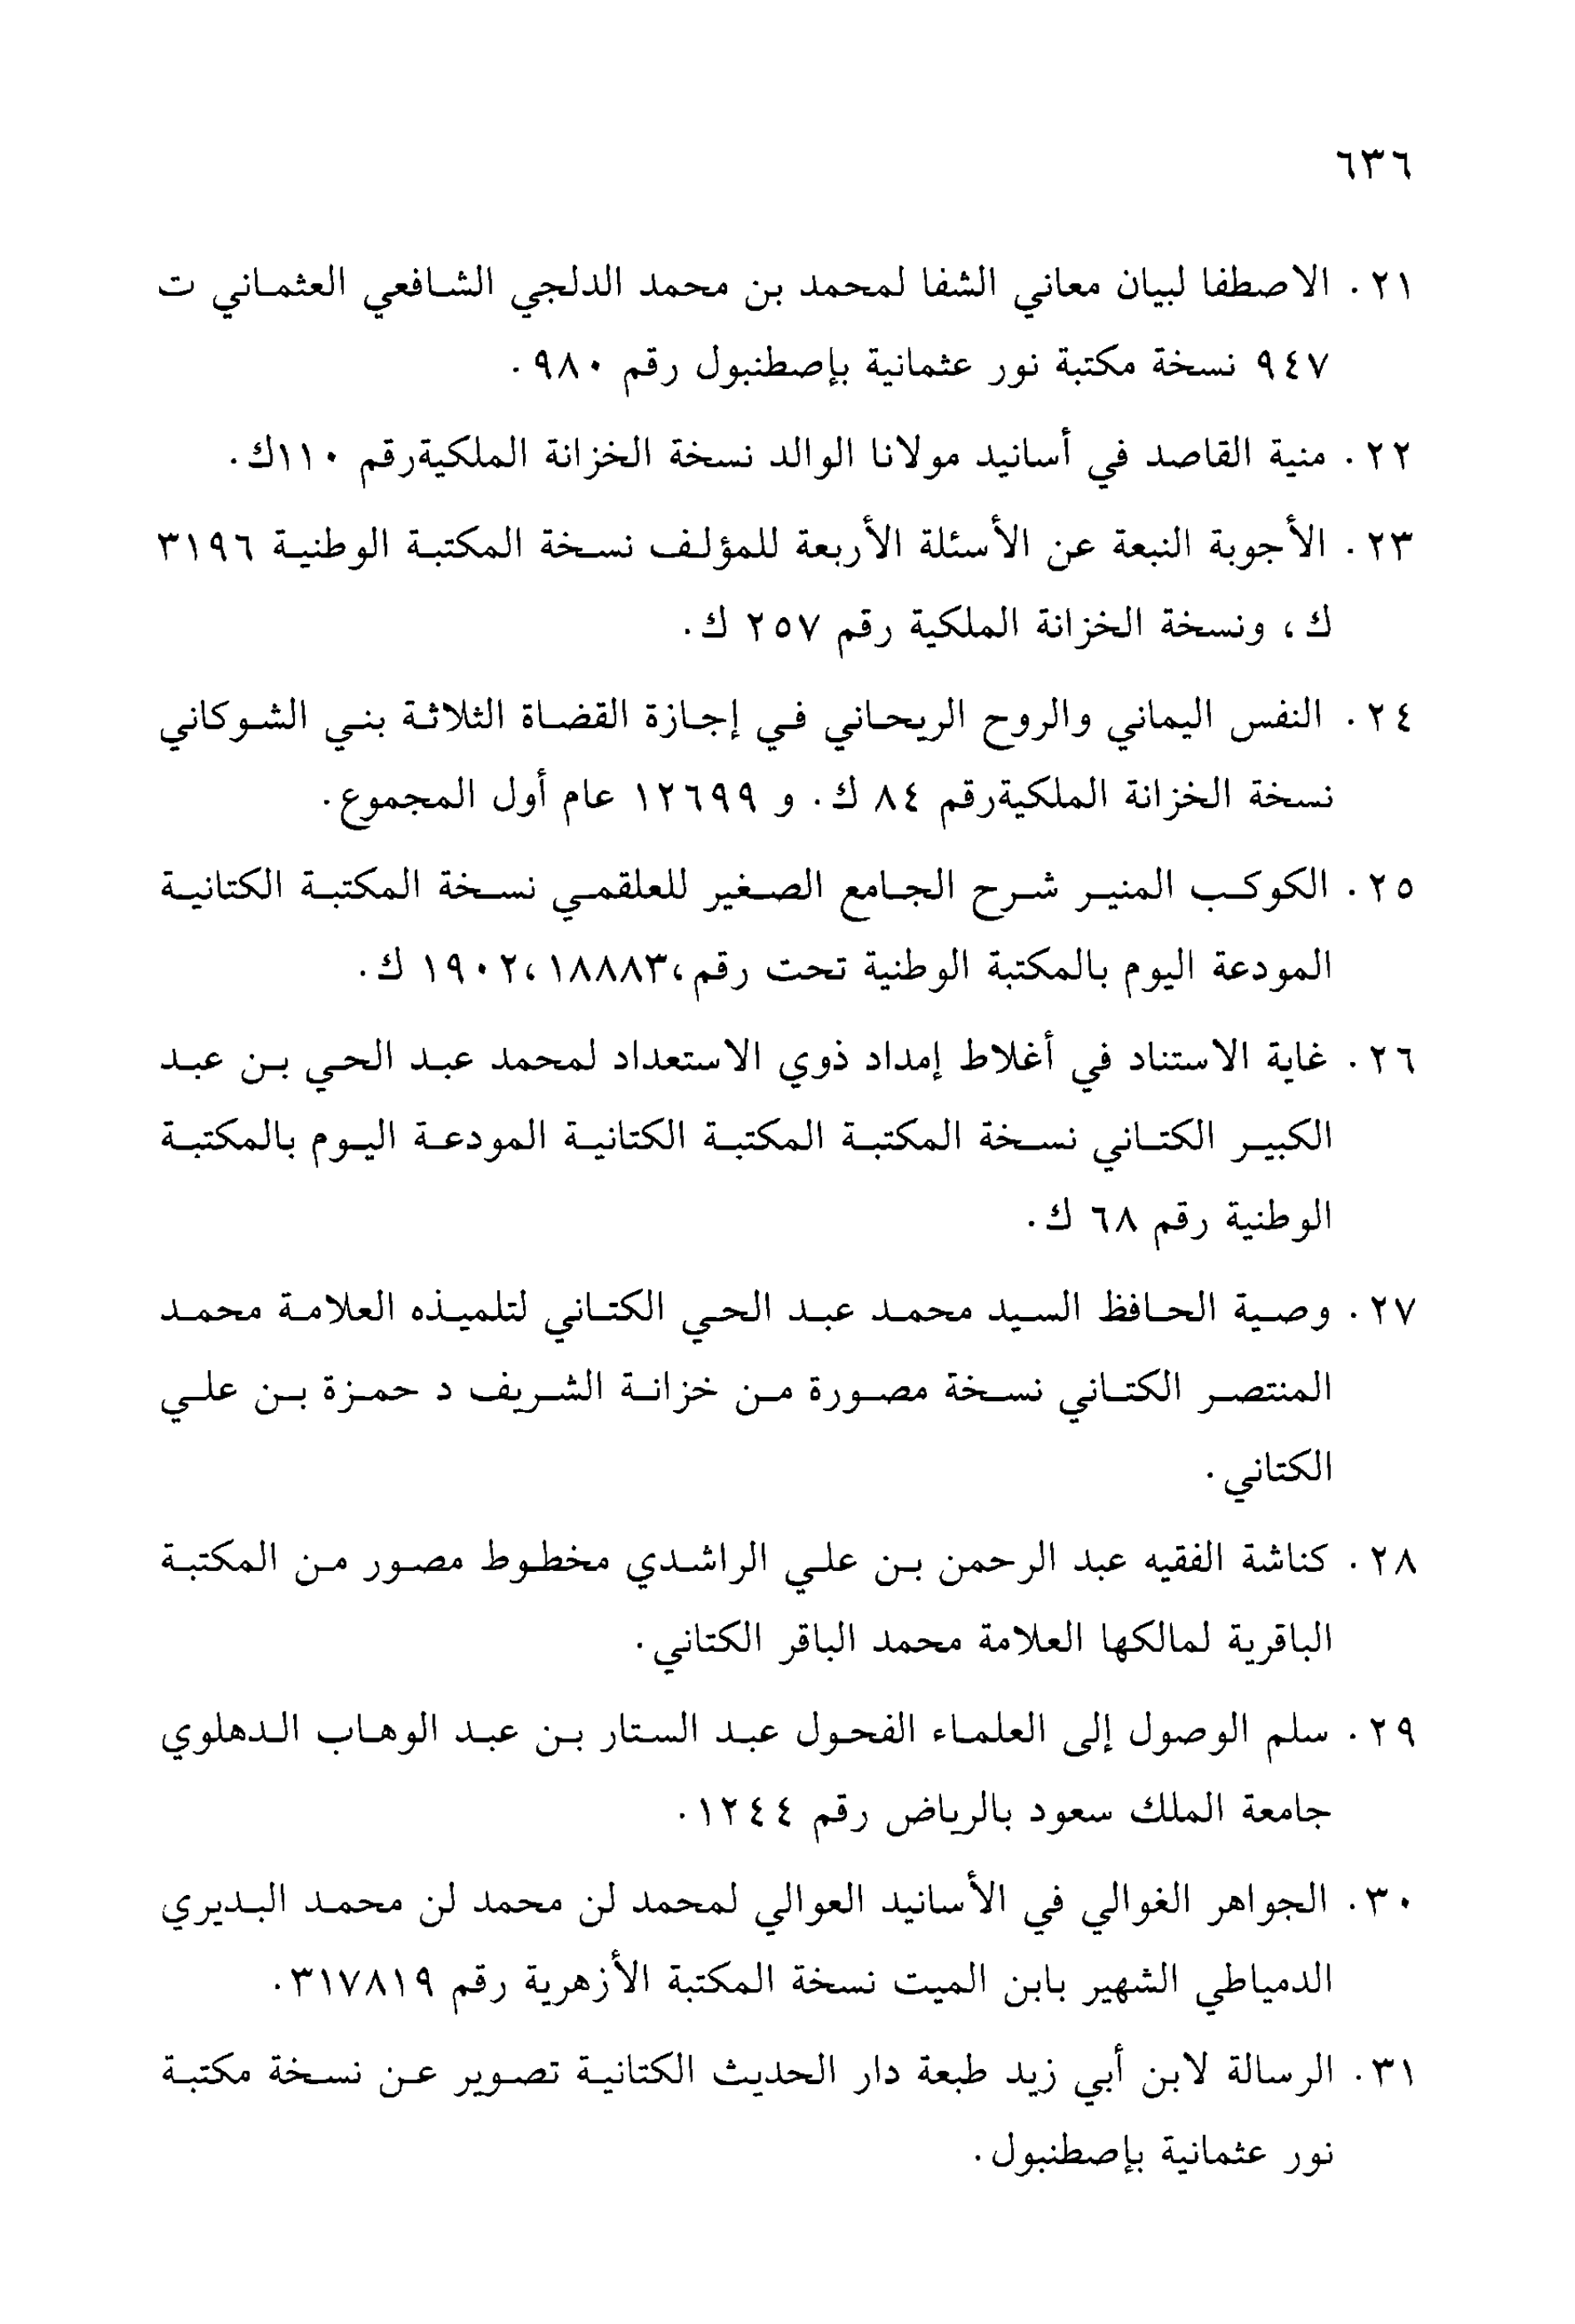 ٦٣٦
٢١. الاصطفا لبيان معاني الشفا لمحمد بن محمد الدلجي الشافعي العثماني ت
٩٤٧ نسخة مكتبة نور عثمانية بإصطنبول رقم ٩٨٠.
٢٢. منية القاصد في أسانيد مولانا الوالد نسخة الخزانة الملكيةرقم ١١٠ك.
٢٣. الأجوبة النبعة عن الأسئلة الأربعة للمؤلف نسخة المكتبة الوطنية ٣١٩٦
ك، ونسخة الخزانة الملكية رقم ٢٥٧ ك.
٢٤. النفس اليماني والروح الريحاني في إجازة القضاة الثلاثة بني الشوكاني
نسخة الخزانة الملكيةرقم ٨٤ ك. و ١٢٦٩٩ عام أول المجموع.
٢٥. الكوكب المنير شرح الجامع الصغير للعلقمي نسخة المكتبة الكتانية
المودعة اليوم بالمكتبة الوطنية تحت رقم،١٨٨٨٣، ١٩٠٢ ك.
٢٦. غاية الاستناد في أغلاط إمداد ذوي الاستعداد لمحمد عبد الحي بن عبد
الكبير الكتاني نسخة المكتبة المكتبة الكتانية المودعة اليوم بالمكتبة
الوطنية رقم ٦٨ ك.
٢٧. وصية الحافظ السيد محمد عبد الحي الكتاني لتلميذه العلامة محمد
المنتصر الكتاني نسخة مصورة من خزانة الشريف د حمزة بن علي
الكتاني.
٢٨. كناشة الفقيه عبد الرحمن بن علي الراشدي مخطوط مصور من المكتبة
الباقرية لمالكها العلامة محمد الباقر الكتاني.
٢٩. سلم الوصول إلى العلماء الفحول عبد الستار بن عبد الوهاب الدهلوي
جامعة الملك سعود بالرياض رقم ١٢٤٤.
٣٠. الجواهر الغوالي في الأسانيد العوالي لمحمد لن محمد لن محمد البديري
الدمياطي الشهير بابن الميت نسخة المكتبة الأزهرية رقم ٣١٧٨١٩.
٣١. الرسالة لابن أبي زيد طبعة دار الحديث الكتانية تصوير عن نسخة مكتبة
نور عثمانية بإصطنبول.